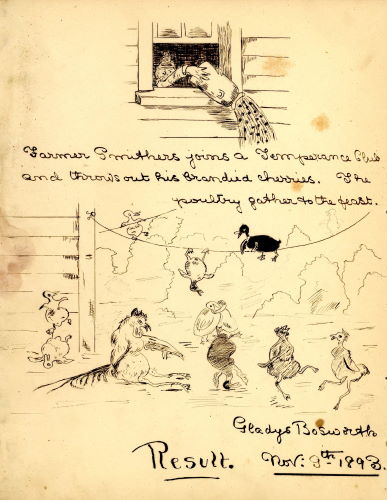 Farmer Smithers joins a Temperance Club
and throws out his brandied cherries. The
poultry gather to the feast.
Gladys Bosworth
Result.
Nov. 9th 1893.